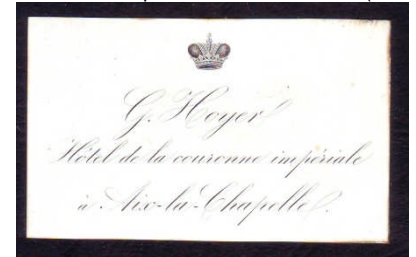 G. Hoyer
Hôtel de la couronne impériale
à Aix-la-Chapelle.